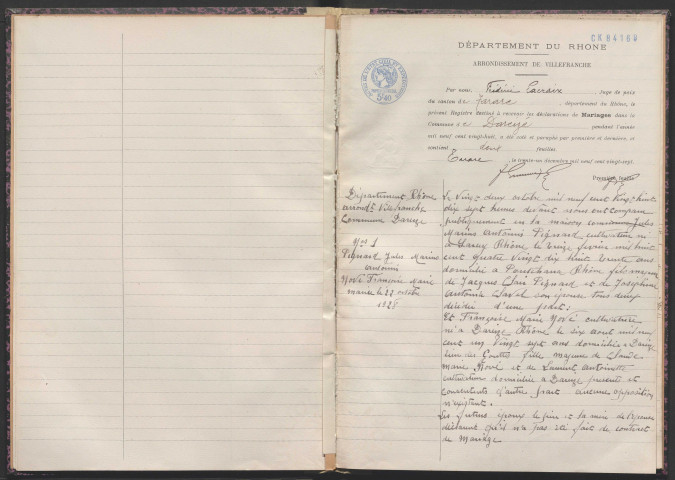 CK 84169
DÉPARTEMENT DU RHONE
ARRONDISSEMENT DE VILLEFRANCHE
Par nous, Frédéric Lacroix, Juge de paix
du canton de Tarare, département du Rhône, le
présent Registre destiné à recevoir les déclarations de Mariages dans la
Commune de Dareizé pendant l'année
mil neuf cent vingt-huit, a été coté et paraphé par première et dernière, et
contient deux feuillets.
Tarare, le trente-un décembre mil neuf cent vingt-sept.
Premier feuillet
Département Rhône
arrondt Villefranche
Commune Dareizé
No 1
Pignard Jules Marius
antonin
Nové Françoise Marie
mariés le 22 octobre
1928
Le Vingt deux octobre mil neuf cent vingt huit
dix sept heures devant nous ont comparu
publiquement en la maison commune Jules
Marius Antonin Pignard cultivateur né
à Rhône le treize février mil huit
cent quatre vingt dix huit trente ans
domicilié à Pontcharra Rhône fils majeur
de Jacques Pignard et de Joséphine
Antonia son épouse tous deux
décédés d'une part :
Et Françoise Marie Nové cultivatrice
née à Dareizé Rhône le six août mil neuf
cent un vingt sept ans domiciliée à Dareizé
lieu des Gouttes fille majeure de Claude
Marie Nové et de Laurent Antoinette
domiciliés à Dareizé présents et
consentants d'autre part aucune opposition
n'existant.
Les futurs époux le père et la mère de l'épouse
déclarent qu'il n'a pas été fait de contrat
de mariage